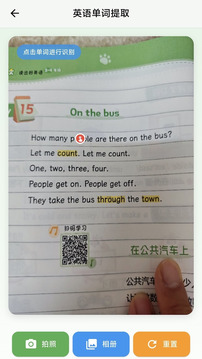 英语单词提取
点击单词进行识别
适合的英语
15
On the bus
How many people are there on the bus?
Let me count. Let me count.
One, two, three, four.
People get on. People get off.
They take the bus through the town.
扫码学习
在公共汽车上
公共汽车
拍照
相册
重置